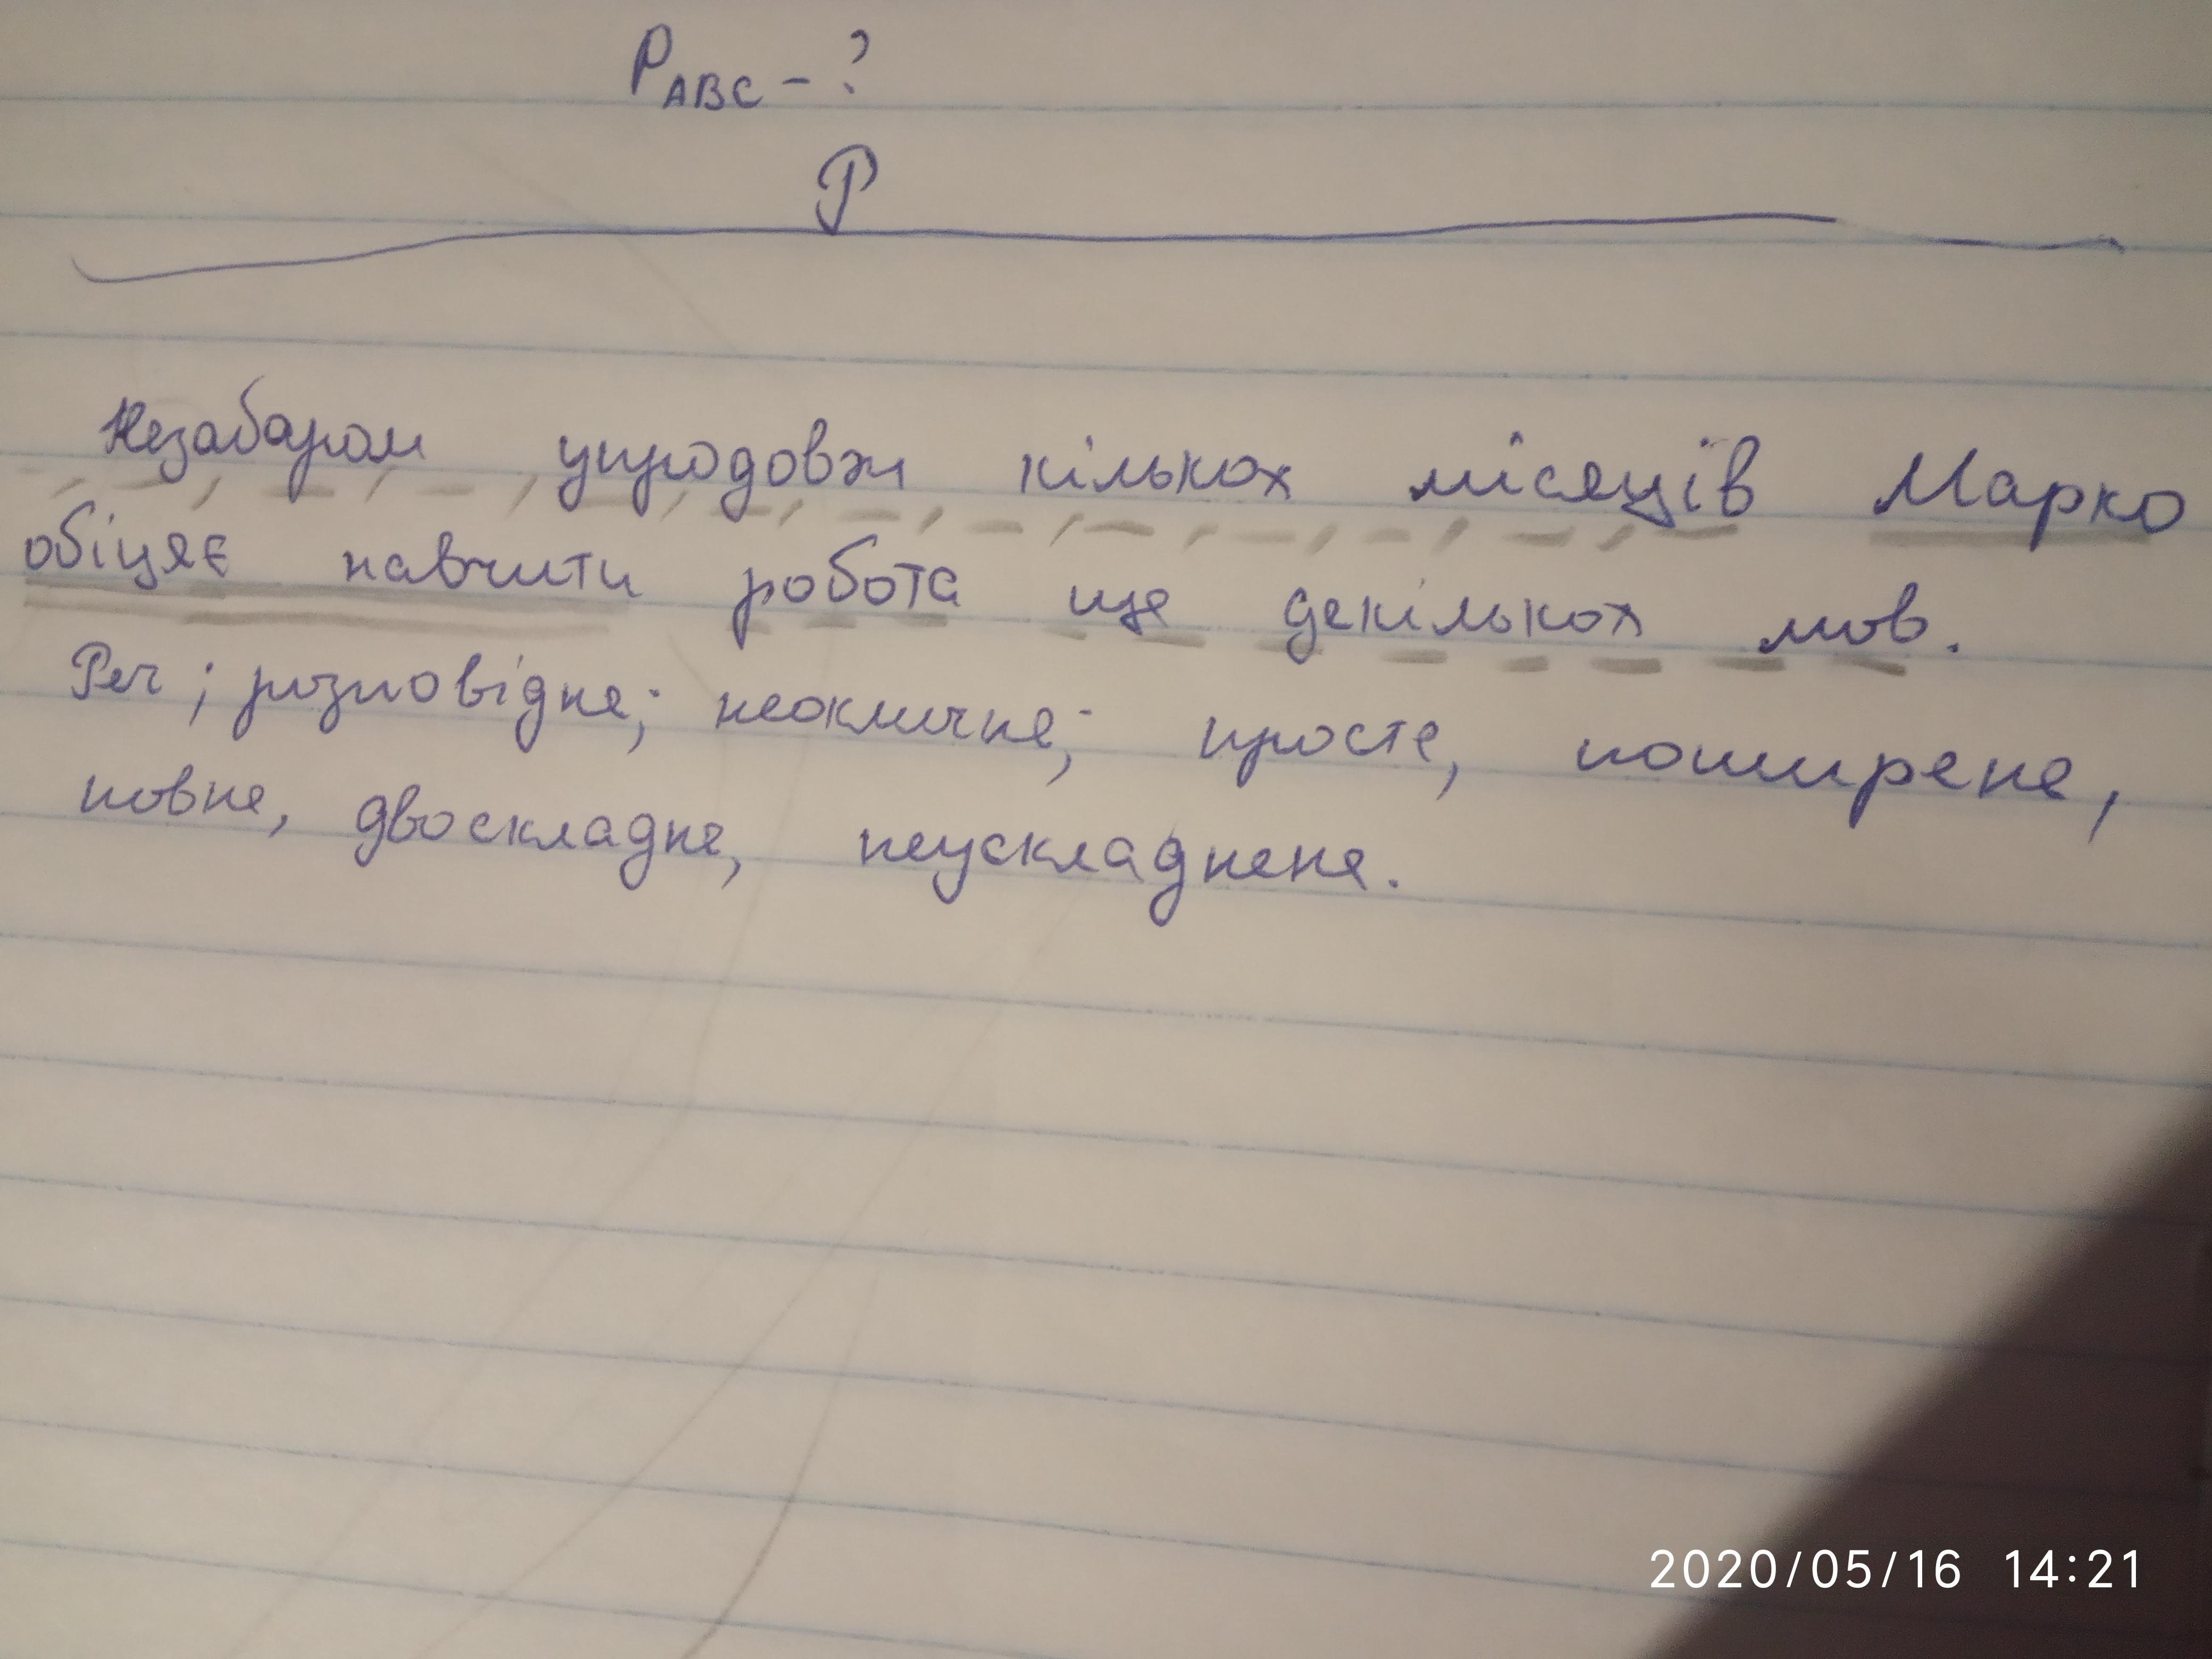 P ABC - ?
P
Незабаром упродовж кількох місяців Марко
обіцяє навчити робота ще декількох мов.
Реч; розповідне; неокличне; просте, поширене,
повне, двоскладне, неускладнене.
2020/05/16 14:21